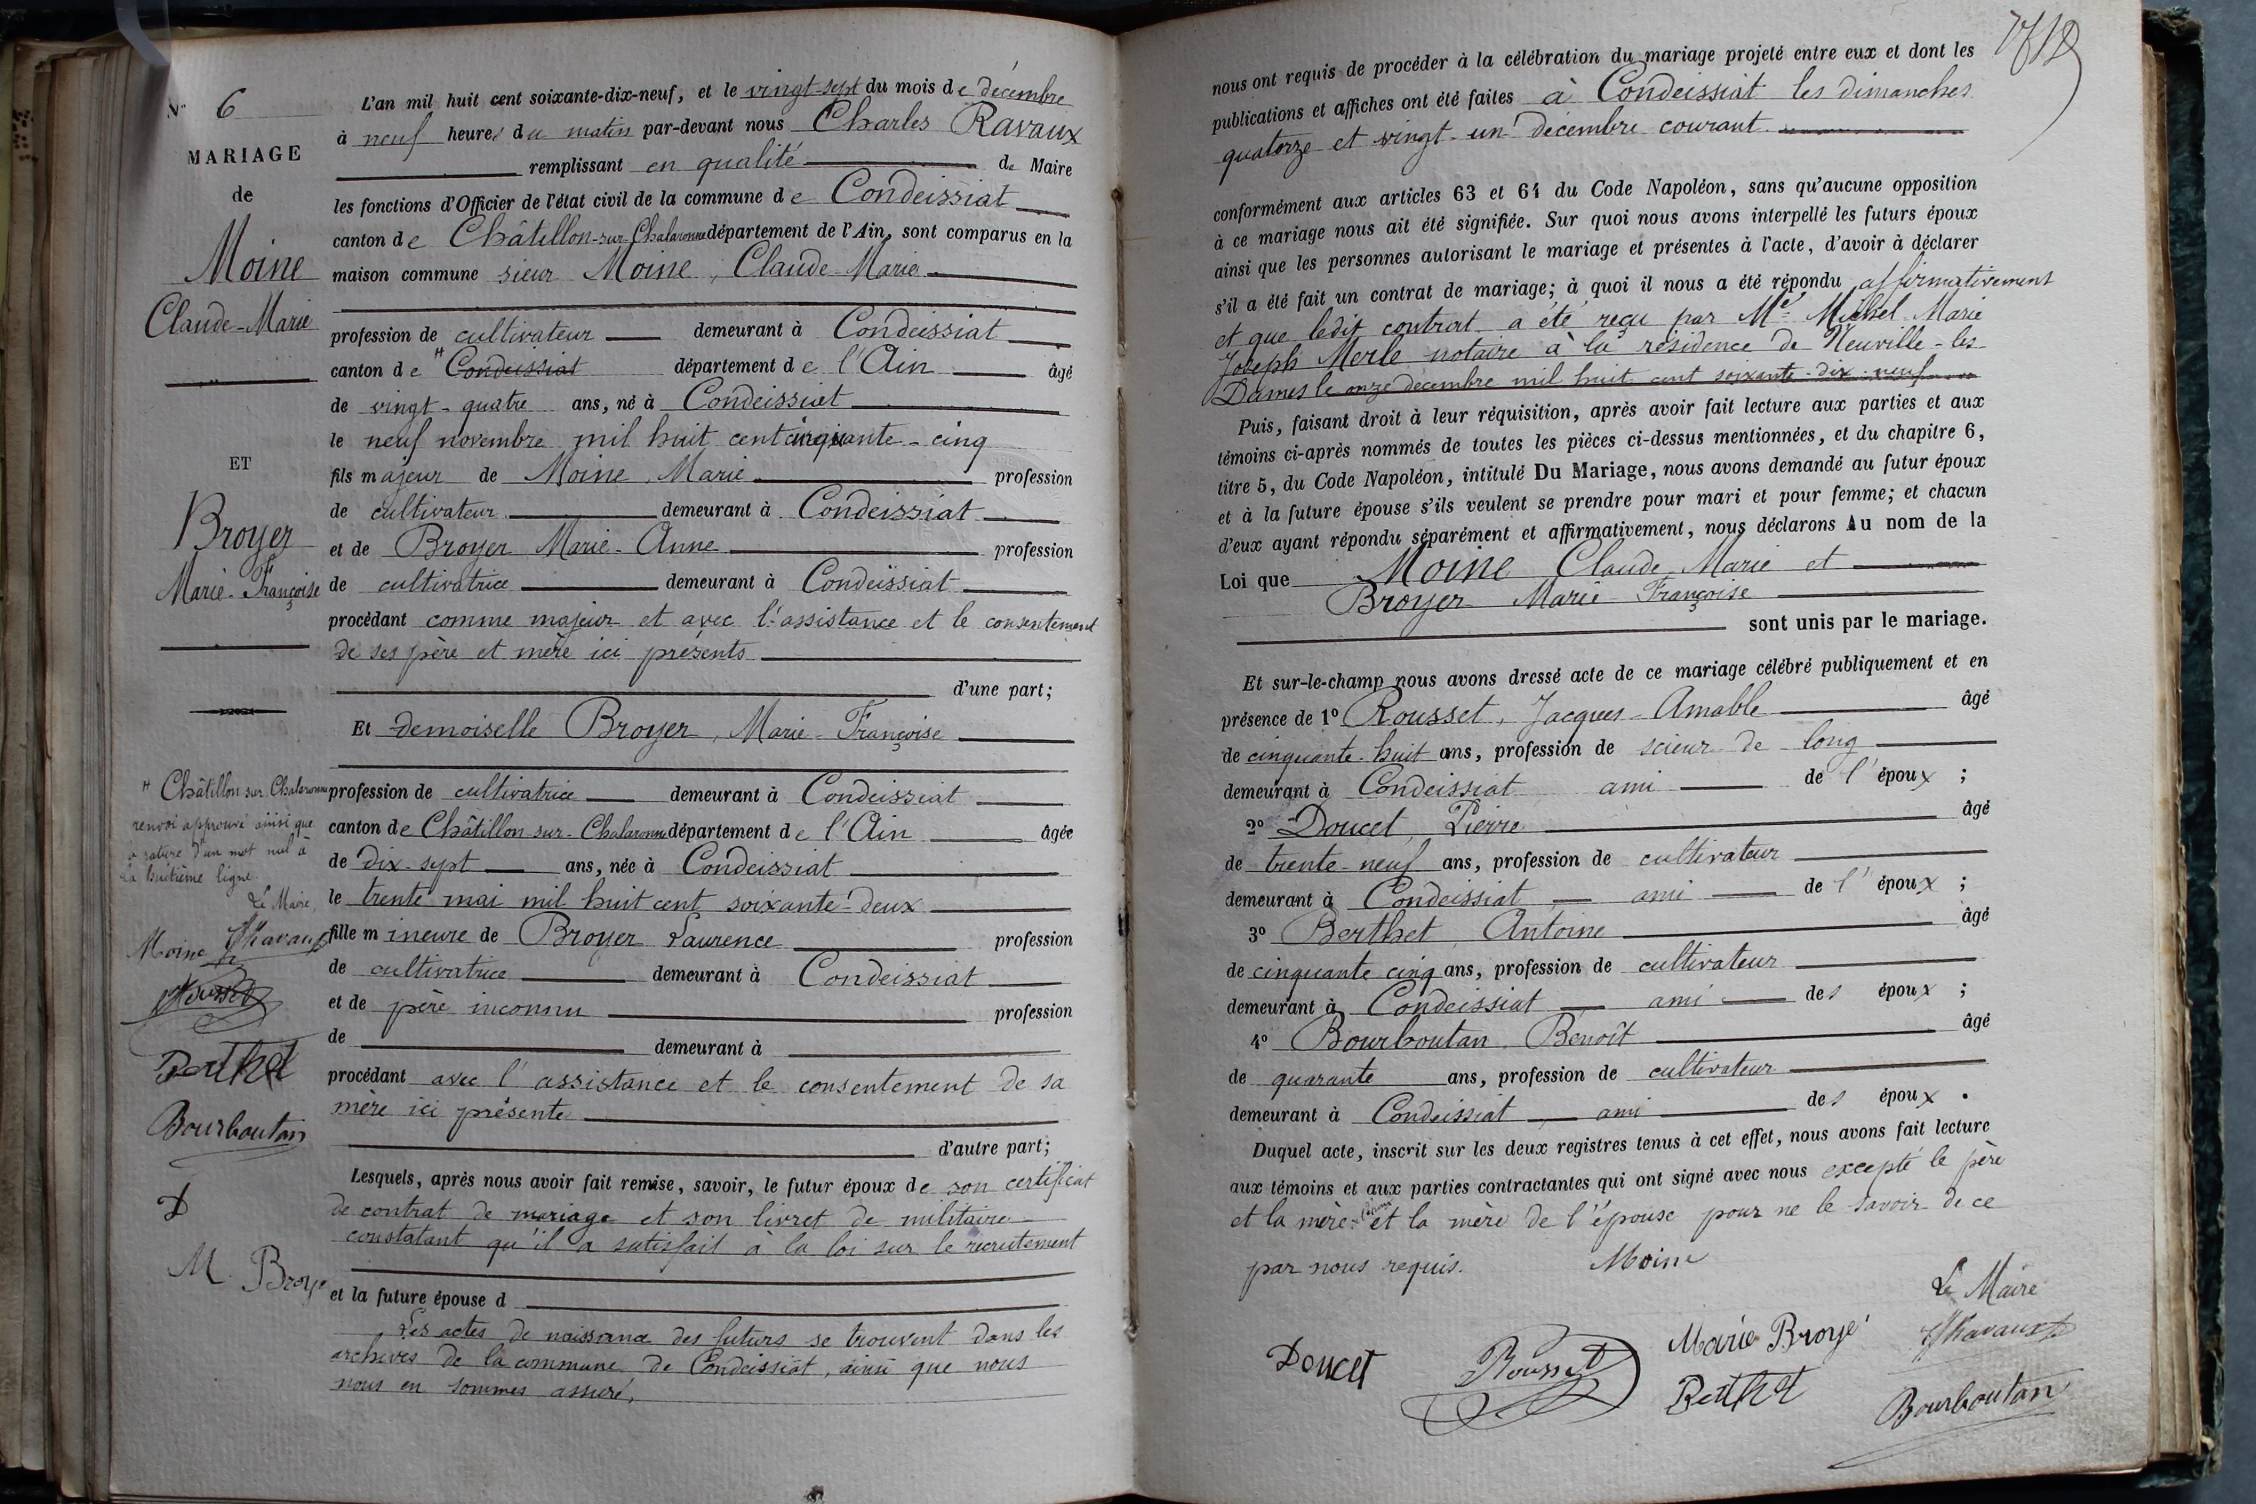 N° 6
MARIAGE
de
Moine
Claude-Marie
ET
Broyer
Marie-Françoise
L'an mil huit cent soixante-dix-neuf, et le vingt-sept du mois de décembre
à neuf heures du matin par-devant nous Charles Ravaux
remplissant en qualité de Maire
les fonctions d'Officier de l'état civil de la commune de Condeissiat
canton de Châtillon-sur-Chalaronne département de l'Ain, sont comparus en la
maison commune sieur Moine, Claude-Marie
profession de cultivateur demeurant à Condeissiat
canton de # Condeissiat département de l'Ain âgé
de vingt-quatre ans, né à Condeissiat
le neuf novembre mil huit cent cinquante-cinq
fils majeur de Moine, Marie profession
de cultivateur demeurant à Condeissiat
et de Broyer Marie-Anne profession
de cultivatrice demeurant à Condeissiat
procédant comme majeur et avec l'assistance et le consentement
de ses père et mère ici présents
d'une part;
Et demoiselle Broyer, Marie-Françoise
profession de cultivatrice demeurant à Condeissiat
canton de Châtillon-sur-Chalaronne département de l'Ain âgée
de dix-sept ans, née à Condeissiat
le trente mai mil huit cent soixante-deux
fille mineure de Broyer Laurence profession
de cultivatrice demeurant à Condeissiat
et de père inconnu profession
de demeurant à
procédant avec l'assistance et le consentement de sa
mère ici présente
d'autre part;
Lesquels, après nous avoir fait remise, savoir, le futur époux de son certificat
de contrat de mariage et son livret de militaire
constatant qu'il a satisfait à la loi sur le recrutement
et la future épouse d
Les actes de naissance des futurs se trouvent dans les
archives de la commune de Condeissiat, ainsi que nous
nous en sommes assuré,
# Châtillon sur Chalaronne
renvoi approuvé ainsi que
la rature d'un mot nul à
la huitième ligne.
Le Maire,
Moine Chavaux
Rousset
Berthet
Bourboutan
D
M. Broye
nous ont requis de procéder à la célébration du mariage projeté entre eux et dont les
publications et affiches ont été faites à Condeissiat les dimanches
quatorze et vingt-un décembre courant
conformément aux articles 63 et 64 du Code Napoléon, sans qu'aucune opposition
à ce mariage nous ait été signifiée. Sur quoi nous avons interpellé les futurs époux
ainsi que les personnes autorisant le mariage et présentes à l'acte, d'avoir à déclarer
s'il a été fait un contrat de mariage; à quoi il nous a été répondu affirmativement
et que ledit contrat a été reçu par Me Michel Marie
Joseph Merle notaire à la résidence de Neuville-les-
Dames le onze décembre mil huit cent soixante-dix-neuf
Puis, faisant droit à leur réquisition, après avoir fait lecture aux parties et aux
témoins ci-après nommés de toutes les pièces ci-dessus mentionnées, et du chapitre 6,
titre 5, du Code Napoléon, intitulé Du Mariage, nous avons demandé au futur époux
et à la future épouse s'ils veulent se prendre pour mari et pour femme; et chacun
d'eux ayant répondu séparément et affirmativement, nous déclarons Au nom de la
Loi que Moine Claude Marie et
Broyer Marie Françoise
sont unis par le mariage.
Et sur-le-champ nous avons dressé acte de ce mariage célébré publiquement et en
présence de 1° Rousset, Jacques-Amable âgé
de cinquante-huit ans, profession de scieur de long
demeurant à Condeissiat ami de l'époux ;
2° Doucet, Pierre âgé
de trente-neuf ans, profession de cultivateur
demeurant à Condeissiat ami de l'époux ;
3° Berthet Antoine âgé
de cinquante cinq ans, profession de cultivateur
demeurant à Condeissiat ami des époux ;
4° Bourboutan Benoît âgé
de quarante ans, profession de cultivateur
demeurant à Condeissiat ami des époux .
Duquel acte, inscrit sur les deux registres tenus à cet effet, nous avons fait lecture
aux témoins et aux parties contractantes qui ont signé avec nous excepté le père
et la mère et la mère de l'épouse pour ne le savoir de ce
par nous requis. Moine
Le Maire
Chavaux
Doucet Rousset Marie Broye
Berthet Bourboutan